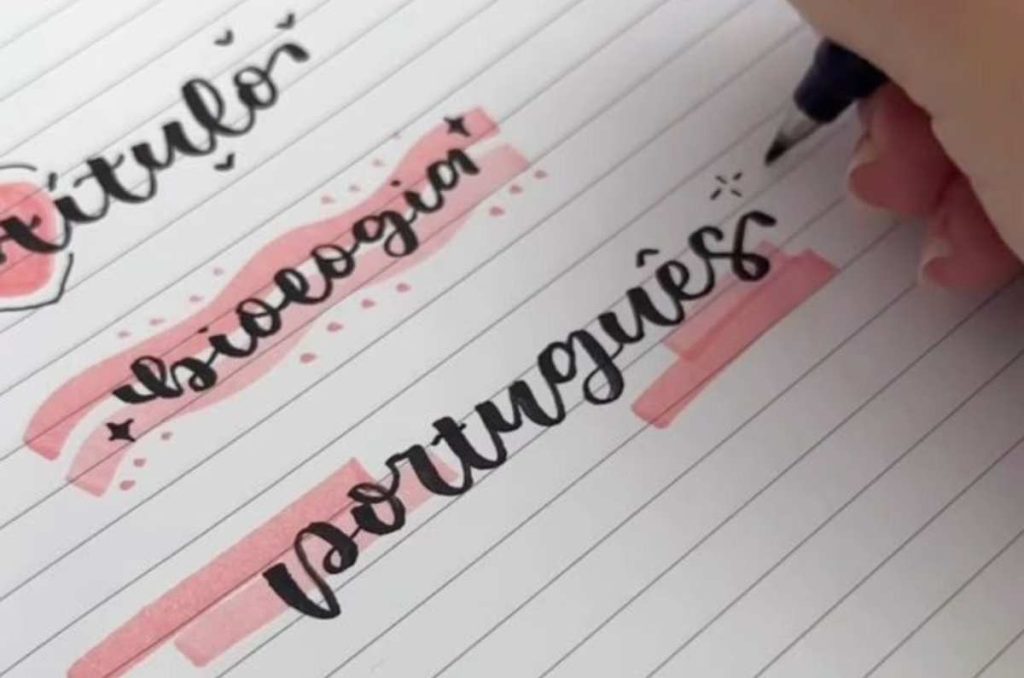 título
biologia
português